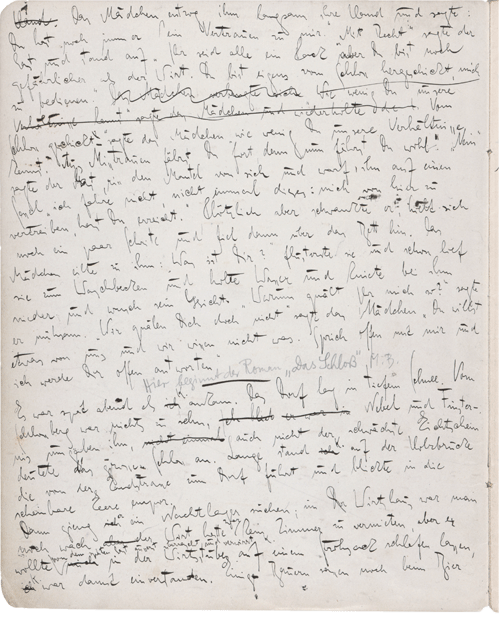 Kind. Das Mädchen entzog ihm langsam ihre Hand und sagte:
Du hast noch immer kein Vertrauen zu mir." "Mit Recht" sagte der
Gast und stand auf. "Ihr seid alle ein Pack aber Du bist noch
gefährlicher als der Wirt. Du bist eigens vom Schloss hergeschickt, mich
zu bedienen." "Wie wenig Du unsere
Verhältnisse kennst" sagte das Mädchen und wiederholte "Vom
Schloss geschickt" sagte das Mädchen "wie wenig Du unsere Verhältnisse
kennst! Aus Misstrauen fährst Du fort denn nun fährst Du wohl?" "Nein"
sagte der Gast, riss den Mantel von sich und warf ihn auf einen
Sessel "ich fahre nicht, nicht einmal dieses: mich von hier zu
vertreiben, hast Du erreicht." Plötzlich aber schwankte er hielt sich
noch ein paar Schritte und fiel dann über das Bett hin. Das
Mädchen eilte zu ihm: "Was ist Dir?" flüsterte sie und schon lief
sie zum Waschbecken und holte Wasser und kniete bei ihm
nieder und wusch sein Gesicht. "Warum quält Ihr mich so?" sagte
er mühsam. "Wir quälen Dich doch nicht" sagte das Mädchen "Du willst
etwas von uns und wir wissen nicht was. Sprich offen mit mir und
ich werde Dir offen antworten."
Hier beginnt der Roman „Das Schloß" M. B.
Es war spät abend als ich ankam. Das Dorf lag in tiefem Schnee. Vom
Schlossberg war nichts zu sehn, Nebel und Finster-
nis umgaben ihn, auch nicht der schwächste Lichtschein
deutete das grosse Schloss an. Lange stand ich auf der Holzbrücke
die von der Landstrasse zum Dorf führt und blickte in die
scheinbare Leere empor.
Dann gieng ich ein Nachtlager suchen; im Wirtshaus war man
noch wach, der Wirt hatte kein Zimmer zu vermieten aber er
wollte in der Wirtsstube auf einem Strohsack schlafen lassen,
ich war damit einverstanden. Einige Bauern waren noch beim Bier